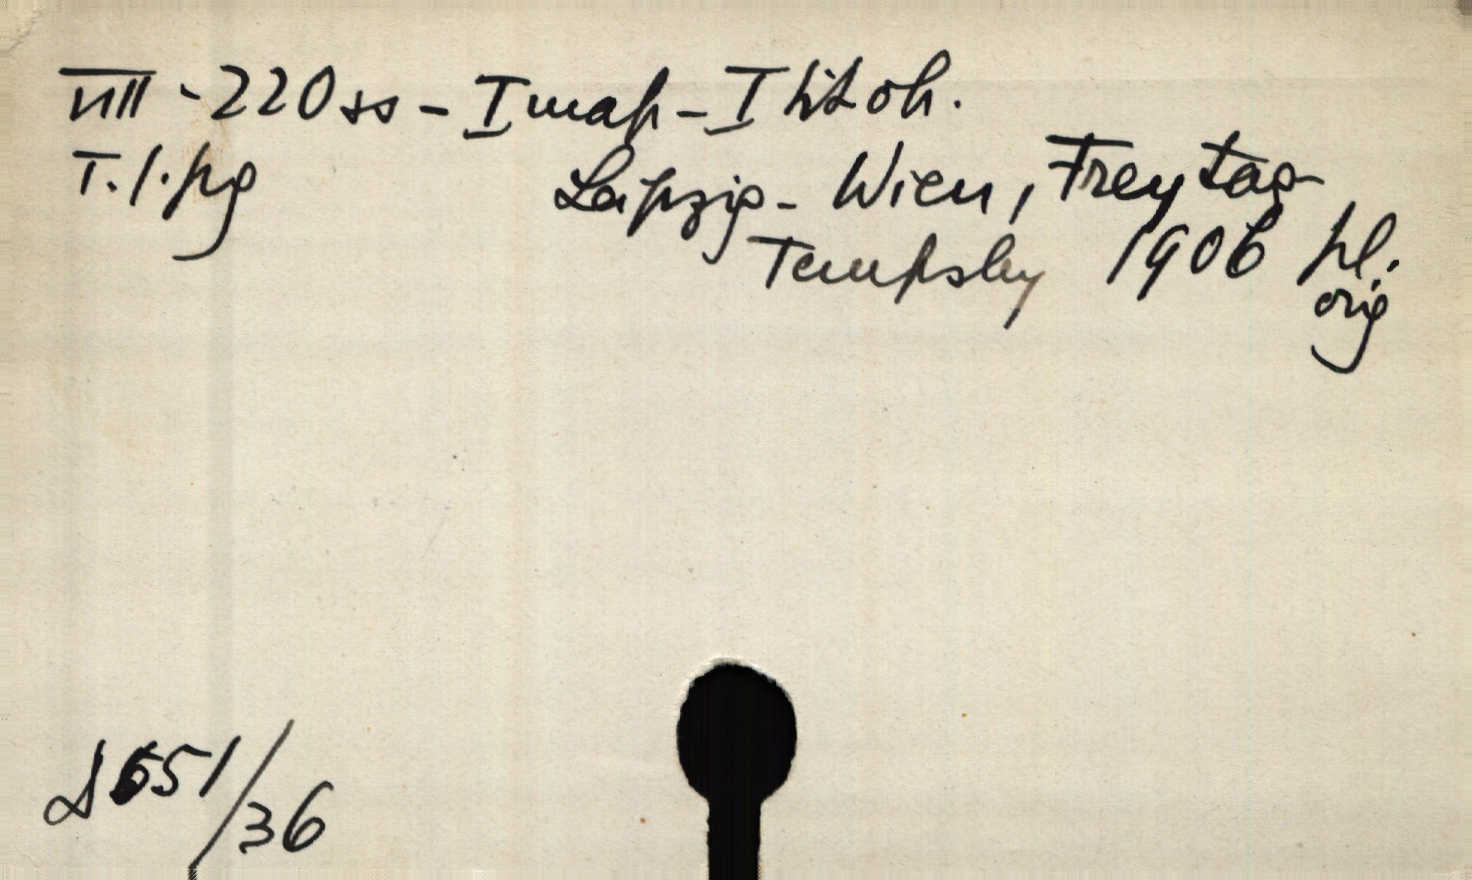 VIII - 220 ss - I map - I lit oh.
T. 1. pg
Leipzig - Wien, Freytag
Tempsky 1906 pl.
orig
S 651/36